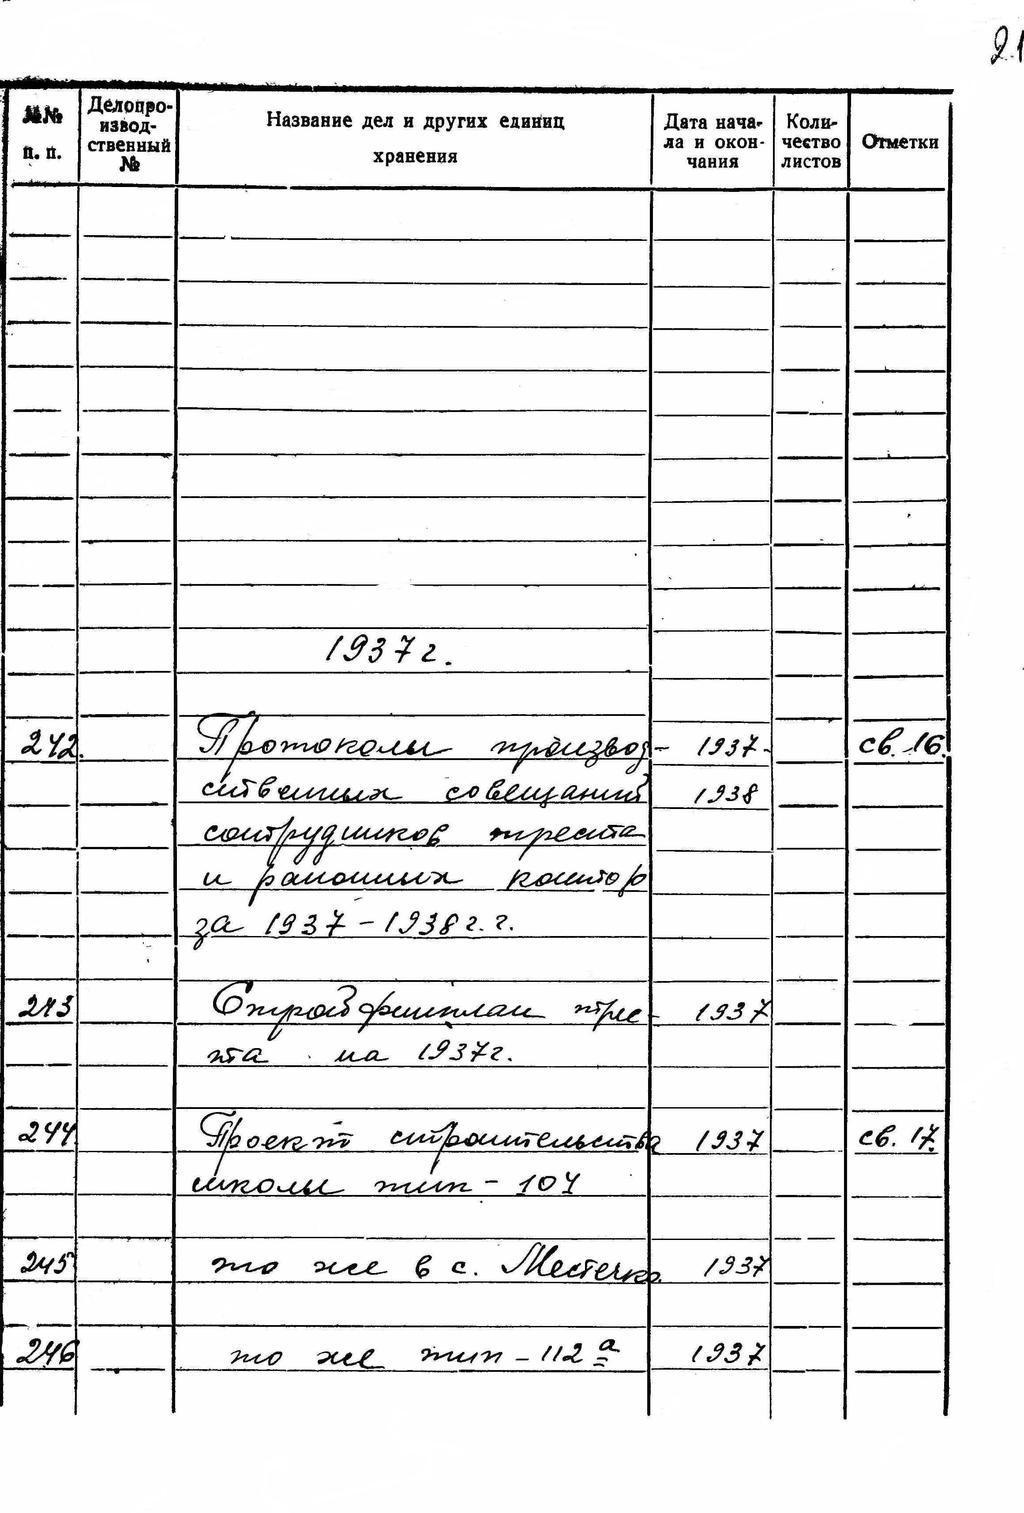 21
№№ п. п.
Делопро-
извод-
ственный
№
Название дел и других единиц
хранения
Дата нача-
ла и окон-
чания
Коли-
чество
листов
Отметки
1937 г.
242. Протоколы производ- 1937- св. 16.
ственных совещаний 1938
сотрудников треста
и районных контор
за 1937-1938 г. г.
243 Стройфинплан трес- 1937
та на 1937 г.
244. Проект строительства 1937 св. 17.
школы тип-104
245 то же в с. Местечко 1937
246 то же тип-112 а 1937